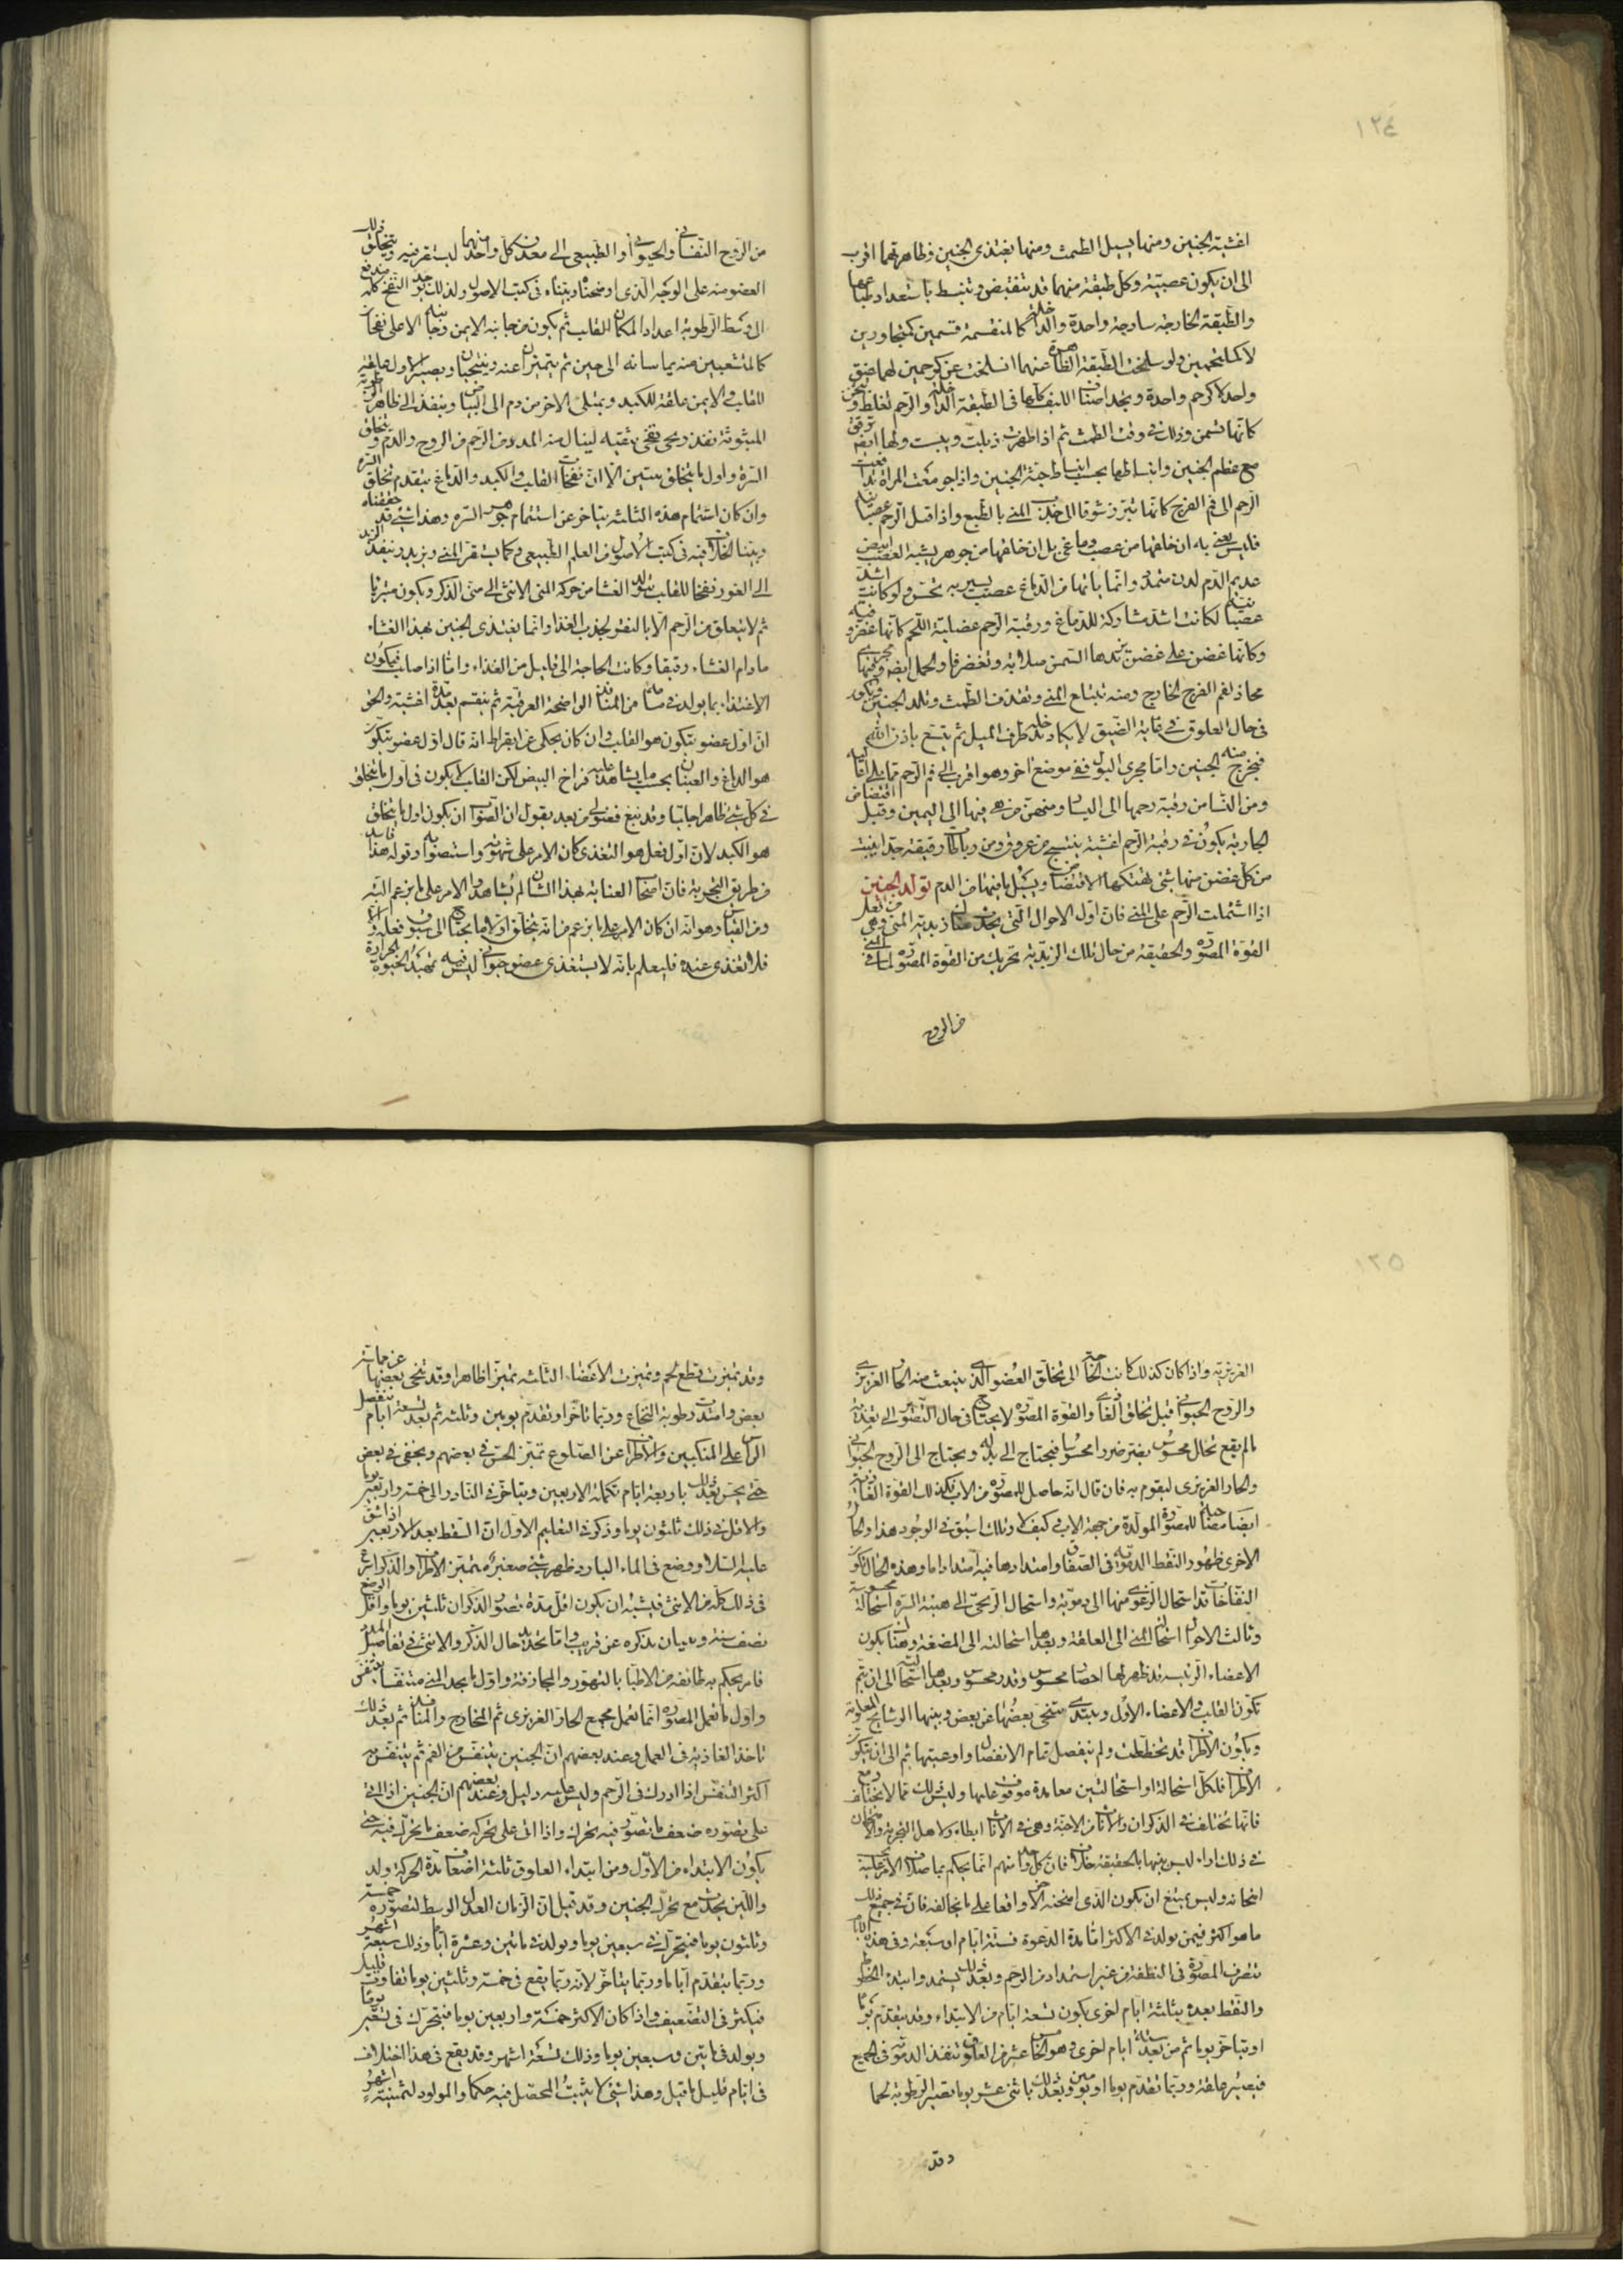 ١٢٤
اغشية الجنين ومنها يسيل الطمث ومنها يغتذى الجنين وظاهرتهما اقرب
الى ان يكون عصبيته وكل طبقة منهما قد تنقبض وتنبسط باستعداد طباعها
والطبقة الخارجة ساذجة واحدة والداخلة كالمنقسمة قسمين كمتجاورين
لا كملتحمين ولو سلخت الطبقة الظاهرة عنهما انسلخت عن كرحمين لهما عنق
واحد لا كرحم واحدة ويجد اصناف الليف كلها فى الطبقة الداخلة والرحم تغلظ وتثخن
كانها تسمن وذلك فى وقت الطمث ثم اذا طهرت ذبلت ويبست ولها ايضا ترفق
مع عظم الجنين وانبساطها بحسب انبساط جثة الجنين واذا جومعت المراة تدافعت
الرحم الى فم الفرج كانها تبرز شوقا الى جذب المنى بالطبع واذا قيل الرحم عصبانية
فليس يعنى به ان خلقها من عصب دماغى بل ان خلقها من جوهر يشبه العصب ابيض
عديم الدم لدن متمدد وانما ياتيها من الدماغ عصب يسير به تحس ولو كانت اشد
عصبانية لكانت اشد مشاركة للدماغ ورقبة الرحم عضلية اللحم كانها غضروفية
وكانها غضن على غضن تزيدها السمن صلابة وتغضرفا والحمل ايضا وفيها مجرى
محاذ لفم الفرج الخارج ومنه تبتلع المنى وتقذف الطمث وتلد الجنين وتكون
فى حال العلوق فى غاية الضيق لا يكاد تدخله طرف الميل ثم تتسع باذن الله
فيخرج منه الجنين واما مجرى البول ففى موضع اخر وهو اقرب الى فم الرحم مما يلى اعاليه
ومن النسا من رقبة رحمها الى اليسار ومنهن من هى فيها الى اليمين وقبل افتضاض
الجارية يكون فى رقبة الرحم اغشية ينتسج من عروق ومن رباطات رقيقة جدا ينبت
من كل غضن منها شى يهتكها الافتضاض ويسيل ما فيها من الدم تولد الجنين
اذا اشتملت الرحم على المنى فان اول الاحوال التى يحدث هناك زبدية المنى وهى من فعل
القوة المصورة والحقيقة من حال تلك الزبدية تحريك من القوة المصورة لما فى المنى
من الروح
من الروح النفسانى والحيوانى او الطبيعى الى معدن كل واحد منها ليستقر فيه ويتخلق ذلك
العضو منه على الوجه الذى اوضحناه وبيناه فى كتب الاصول ولذلك يوجد النفخ كله مندفع
الى وسط الرطوبة اعدادا لمكان القلب ثم يكون من جانبه الايمن وجانبه الاعلى نفخان
كالمتشعبين منه يماسانه الى حين ثم يتميزان عنه ويتنحيان ويصير الاول علقة
للقلب والايمن علقة للكبد ويمتلى الاخر من دم الى البياض وينفذ الى ظاهر الرطوبة
المبثوثة نفذ ريحى نفخى يثقبه لينال منه المدد من الرحم من الروح والدم ويتخلق
السرة واول ما يتخلق يتبين الا ان نفخات القلب والكبد والدماغ يتقدم تخلق السرة
وان كان استتمام هذه الثلثة يتاخر عن استتمام جوهر السرة وهذا شى قد حققناه
وبينا الخلاف فيه فى كتب الاصول من العلم الطبيعى وكما يستقر المنى ويزبد وينفذ الزبد
الى الغور نفخا للقلب يتولد الغشا من حركة المنى الانثى الى منى الذكر ويكون متبريا
ثم لا يتعلق من الرحم الا بالنقر لجذب الغذا وانما يغتذى الجنين بهذا الغشاء
ما دام الغشاء رقيقا وكانت الحاجة الى قليل من الغذاء واما اذا صلب فيكون
الاغتذاء بما يولد فى مسامه من المنافذ الواضحة العرقية ثم ينقسم بعد مدة اغشية والحق
ان اول عضو يتكون هو القلب وان كان يحكى عن ابقراط انه قال اول عضو يتكون
هو الدماغ والعينان بحسب ما يشاهد عليه فراخ البيض لكن القلب لا يكون فى اول ما يتخلق
فى كل شى ظاهرا جليا وقد نبغ فضولى من بعد يقول ان الصواب ان يكون اول ما يتخلق
هو الكبد لان اول فعل هو التغذى كان الامر على شهوته واستصوابه وقوله هذا فاسد
من طريق التجربة فان اصحاب العناية بهذا الشان لم يشاهدوا الامر على ما يزعم البتة
ومن القياس وهو انه ان كان الامر على ما يزعم من انه يتخلق اولا ما يحتاج الى سبوق فعله اولا
فلا تغذى عنده فليعلم بانه لا يستغذى عضو حيوانى ليس فيه تمهيد الحيوة بالحرارة
١٢٥
الغريزية واذا كان كذلك كانت الحاجة الى تخلق العضو الذى ينبعث منه الحار الغريزى
والروح الحيوانى قبل تخلق الغاذى والقوة المصورة لا يحتاج فى حال التصوير الى تغذية
ما لم يقع تحلل محسوس يضر ضررا محسوسا فيحتاج الى بدله ويحتاج الى الروح الحيوانى
والحار الغريزى ليقوم به فان قال انه حاصل للمصورة من الاب فكذلك القوة الغاذية
ايضا مصاحبة للمصورة المولدة من جهة الاب فى كيف لا وتلك اسبق فى الوجود هذا والحال
الاخرى ظهور النقط الدموية فى الصفاق وامتدادها فيه امتدادا ما وهذه الحال تكون
النفاخات قد استحال الرغوى منها الى دموية واستحال الريحى الى هيئة السرة استحالة محسوسة
وثالث الاحوال استحالة المنى الى العلقة وبعدها استحالته الى المضغة وهناك يكون
الاعضاء الرئيسة قد ظهر لها انفصال محسوس وقدر محسوس وبعدها استحالته الى ان يتم
تكون القلب والاعضاء الاول ويبتدى يتنحى بعضها عن بعض وبينها الوشايج العلوية
ويكون الاطراف قد تخططت ولم تنفصل تمام الانفصال واوعيتها ثم الى ان يتكون
الاطراف فلكل استحالة او استحالتين معا مدة موقوف عليها وليس ذلك مما لا يختلف
فانها تختلف فى الذكران والاناث من الاجنة وهى فى الاناث ابطاء ولاهل التجربة والامتحان
فى ذلك اراء ليس بينها بالحقيقة خلاف فان كل واحد منهم انما يحكم بما صادف الامر عليه
امتحانه وليس يمتنع ان يكون الذى امتحنه الاخر واقعا على ما يخالفه فان فى جميع ذلك
ما هو اكثر فيمن يولد فى الاكثر اما مدة الرغوة فستة ايام او سبعة وفى هذه الايام
تتصرف المصورة فى النطفة من غير استمداد من الرحم وبعد ذلك يستمد وابتداء الخطوط
والنقط بعده بثلثة ايام اخرى يكون تسعة ايام من الابتداء وقد يتقدم يوما
او يتاخر يوما ثم من بعد ستة ايام اخرى وهو الخامس عشر من العلوق تنفذ الدموية فى الجميع
فيصير علقة وربما تقدم يوما او يومين وبعد ذلك باثنى عشر يوما تصير الرطوبة لحما
وقد
وقد تميزت قطع لحم وتميزت الاعضاء الثلثة تميزا ظاهرا وقد تنحى بعضها عن مماسة
بعض وامتدت رطوبة النخاع وربما تاخر او تقدم يومين وثلثة ثم بعد تسعة ايام ينفصل
الراس على المنكبين والاطراف عن الضلوع تميز الحس فى بعضهم ويخفى فى بعض
حتى يحس بعد ذلك باربعة ايام تكملة الاربعين ويتاخر فى النادر الى خمسة واربعين يوما
والاقل فى ذلك ثلثون يوما وذكر فى التعليم الاول ان السقط بعد الاربعين اذا شق
عليه السلا ووضع فى الماء البارد ظهر شى صغير متميز الاطراف والذكر اسرع
فى ذلك كله من الانثى فيشبه ان يكون اقل مدة تصور الذكران ثلثين يوما واقل الوضع
نصف سنة وبيان نذكره عن قريب واما تحديد حال الذكر والانثى فى تفاصيل المدد
فامر يحكم به طائفة من الاطبا بالتهور والمجازفة واول ما يجد المنى متنفسا يتنفس
واول ما يعمل المصورة انما يعمل مجمع الحار الغريزى ثم المخارج والمنافذ ثم بعد ذلك
تاخذ الغاذية فى العمل وعند بعضهم ان الجنين يتنفس من الفم ثم يتنفس به
اكثر التنفس اذا ادرك فى الرحم وليس عليه دليل وعند بعضهم ان الجنين اذا اتى
على تصوره ضعف ما تصور فيه تحرك واذا اتى على تحركه ضعف ما تحرك فيه حتى
يكون الابتداء من الاول ومن ابتداء العلوق ثلثة اضعاف مدة الحركة ولد
واللبن يحدث مع تحرك الجنين وقد قيل ان الزمان العدل الوسط لتصوره خمسة
وثلثون يوما فيتحرك فى سبعين يوما ويولد فى مائتين وعشرة ايام وذلك سبعة اشهر
وربما يتقدم اياما وربما يتاخر لانه ربما يقع فى خمسة وثلثين يوما تفاوت قليل
فيكثر فى التضعيف واذا كان الاكثر خمسة واربعين يوما فيتحرك فى تسعين يوما
ويولد فى مائتين وسبعين يوما وذلك تسعة اشهر وقد يقع فى هذا اختلاف
فى ايام قليل ما قيل وهذا شى لا يثبت المحصل فيه حكما والمولود لثمنية اشهر